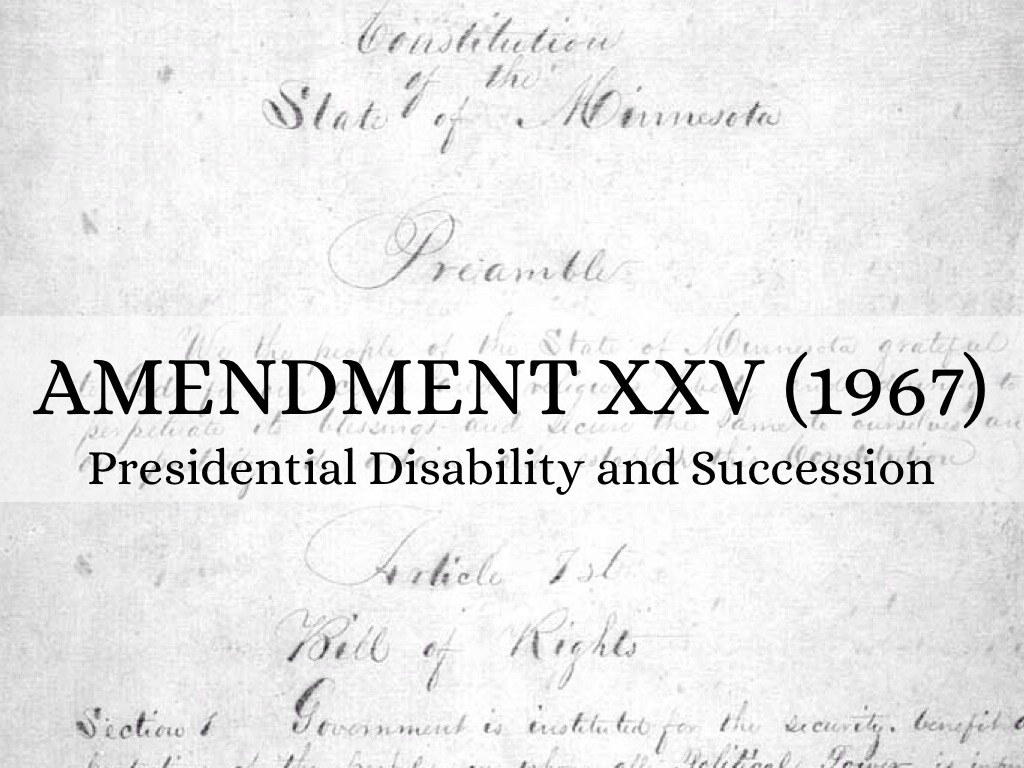 Constitution
of the
State of Minnesota
Preamble
We the people of the State of Minnesota grateful
AMENDMENT XXV (1967)
perpetuate its blessings and secure the same to ourselves
Presidential Disability and Succession
Article 1st
Bill of Rights
Section 1 Government is instituted for the security, benefit
of the people, in whom all Political Power is